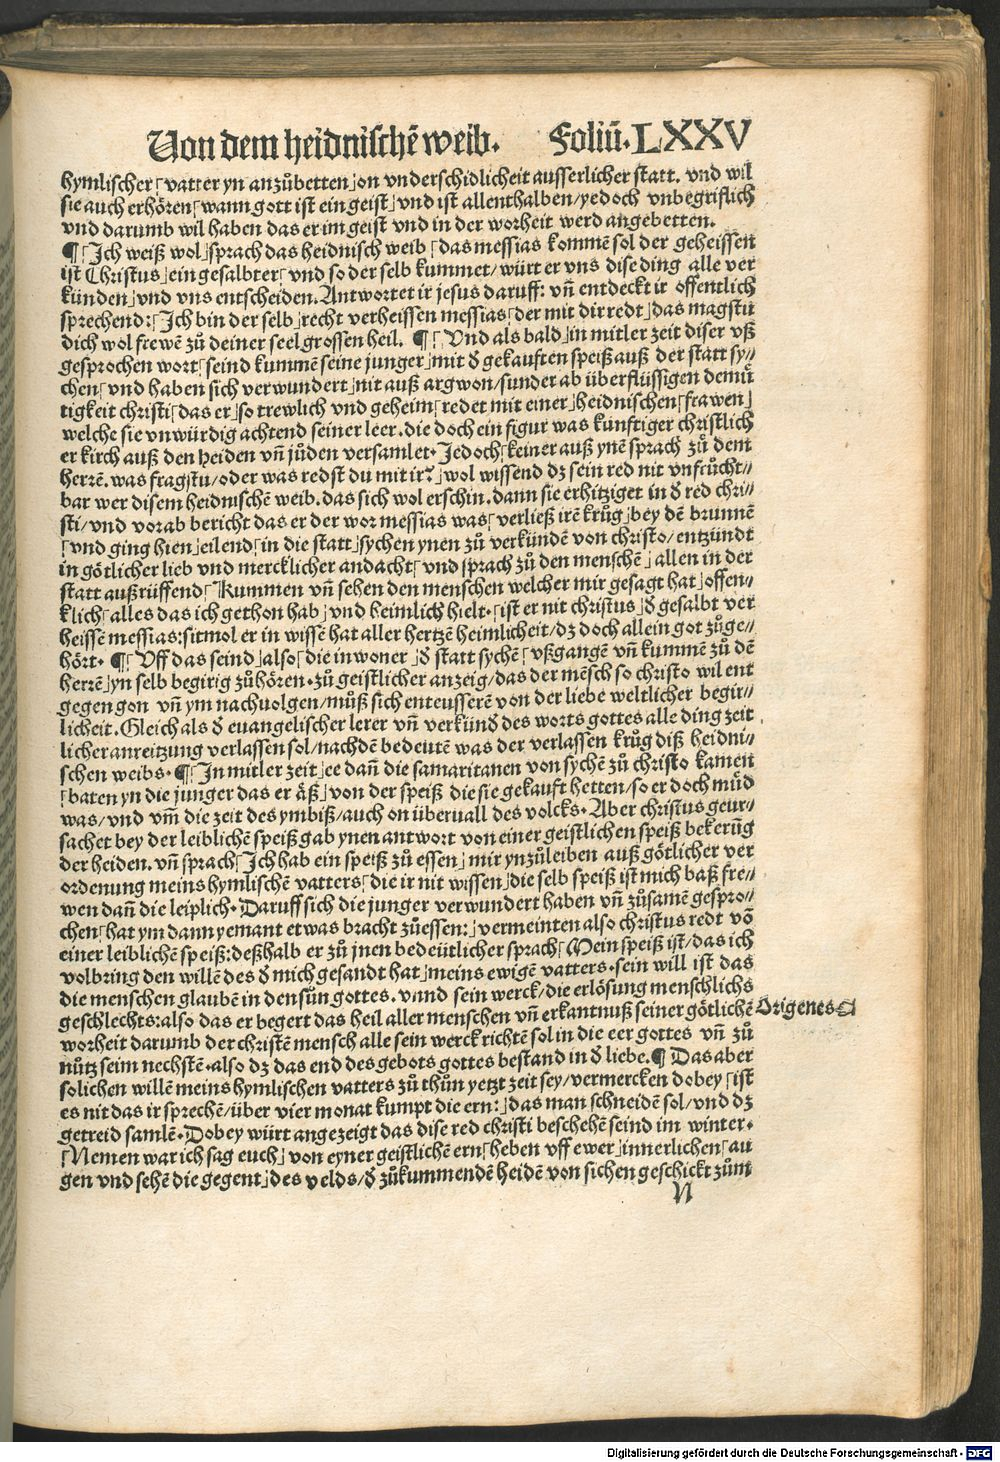 Von dem heidnischē weib. Foliū. LXXV
hymlischer ⌈vatter yn anzůbetten⌋ on vnderschidlicheit ausserlicher statt. vnd wil
sie auch erhören ⌈wann gott ist ein geist⌋ vnd ist allenthalben / yedoch vnbegriflich
vnd darumb wil haben das er im geist vnd in der worheit werd angebetten.
¶ ⌈Ich weiß wol⌋ sprach das heidnisch weib ⌈das messias kommē sol der geheissen
ist Christus⌋ ein gesalbter ⌈vnd so der selb kummet / würt er vns dise ding alle ver
künden⌋ vnd vns entscheiden. Antwortet ir jesus daruff: vñ entdeckt ir offentlich
sprechend: ⌈Ich bin der selb⌋ recht verheissen messias ⌈der mit dir redt⌋ das magstu
dich wol frewē zů deiner seel grossen heil. ¶ ⌈Vnd als bald⌋ in mitler zeit diser vß
gesprochen wort ⌈seind kummē seine junger⌋ mit ď gekauften speiß auß der statt sy//
chen ⌈vnd haben sich verwundert⌋ nit auß argwon / sunder ab überflüssigen demů
tigkeit christi ⌈das er⌋ so trewlich vnd geheim ⌈redet mit einer⌋ heidnischen ⌈frawen⌋
welche sie vnwürdig achtend seiner leer. die doch ein figur was kunftiger christlich
er kirch auß den heiden vñ juden versamlet. Jedoch ⌈keiner auß ynē sprach zů dem
herrē. was fragstu / oder was redst du mit ir?⌋ wol wissend dz sein red nit vnfrücht//
bar wer disem heidnischē weib. das sich wol erschin. dann sie erhitziget in ď red chri//
sti / vnd vorab bericht das er der wor messias was ⌈verließ irē krůg⌋ bey dē brunnē
⌈vnd ging hien⌋ eilend ⌈in die statt⌋ sychen ynen zů verkünden von christo / entzündt
in götlicher lieb vnd mercklicher andacht ⌈vnd sprach zů den menschē⌋ allen in der
statt außrüffend ⌈Kummen vñ sehen den menschen welcher mir gesagt hat⌋ offen//
klich ⌈alles das ich gethon hab⌋ vnd heimlich hielt. ⌈ist er nit christus⌋ ď gesalbt ver
heissē messias: sitmol er in wissē hat aller hertzē heimlicheit / dz doch allein got zůge//
hört. ¶ ⌈Vff das seind⌋ also ⌈die inwoner⌋ ď statt sychē ⌈vßgangē vñ kummē zů dē
herrē⌋ yn selb begirig zů hören. zů geistlicher anzeig / das der mēsch so christo wil ent
gegen gon vñ ym nachuolgen / můß sich enteusserē von der liebe weltlicher begir//
licheit. Gleich als ď euangelischer lerer vñ verkünd des worts gottes alle ding zeit
licher anreitzung verlassen sol / nachdē bedeutē was der verlassen krůg diß heidni//
schen weibs. ¶ ⌈In mitler zeit⌋ ee dañ die samaritanen von sychē zů christo kamen
⌈baten yn die junger das er äß⌋ von der speiß die sie gekauft hetten / so er doch müd
was / vnd vm̄ die zeit des ymbiß / auch on überuall des volcks. Aber christus geur//
sachet bey der leiblichē speiß gab ynen antwort von einer geistlichen speiß bekerūg
der heiden. vñ sprach ⌈Ich hab ein speiß zů essen⌋ mir ynzůleiben auß götlicher ver
ordenung meins hymlischē vatters ⌈die ir nit wissen⌋ die selb speiß ist mich baß fre//
wen dañ die leiplich. Daruff sich die junger verwundert haben vñ zůsamē gespro//
chen ⌈hat ym dann yemant etwas bracht zůessen:⌋ vermeinten also christus redt vō
einer leiblichē speiß: deßhalb er zů jnen bedeütlicher sprach ⌈Mein speiß ist / das ich
volbring den willē des ď mich gesandt hat⌋ meins ewigē vatters. sein will ist das
die menschen glaubē in den sůn gottes. vnnd sein werck / die erlösung menschlichs
geschlechts: also das er begert das heil aller menschen vñ erkantnuß seiner götlichē
Origenes
worheit darumb der christē mensch alle sein werck richtē sol in die eer gottes vñ zů
nůtz seim nechstē. also dz das end des gebots gottes bestand in ď liebe. ¶ Das aber
solichen willē meins hymlischen vatters zů thůn yetzt zeit sey / vermercken dobey ⌈ist
es nit das ir sprechē / über vier monat kumpt die ern:⌋ das man schneidē sol / vnd dz
getreid samlē. Dobey würt angezeigt das dise red christi beschehē seind im winter.
⌈Nemen war ich sag euch⌋ von eyner geistlichē ern ⌈heben vff ewer⌋ innerlichen ⌈au
gen vnd sehē die gegent⌋ des velds / ď zůkummendē heidē von sichen geschickt zům
N
Digitalisierung gefördert durch die Deutsche Forschungsgemeinschaft - DFG